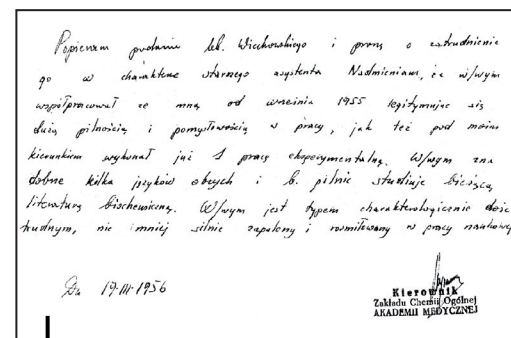 Popieram podanie lek. Wiechowskiego i proszę o zatrudnienie
go w charakterze starszego asystenta Nadmieniam, że w/wym
współpracował ze mną od września 1955 legitymując się
dużą pilnością i pomysłowością w pracy, jak też pod moim
kierunkiem wykonał już 1 pracę eksperymentalną. W/wym zna
dobrze kilka języków obcych i b. pilnie studiuje bieżącą
literaturę biochemiczną. W/wym jest typem charakterologicznie dość
trudnym, nie mniej silnie zapalony i rozmiłowany w pracy naukowej
19.III.1956
Kierownik
Zakładu Chemii Ogólnej
AKADEMII MEDYCZNEJ